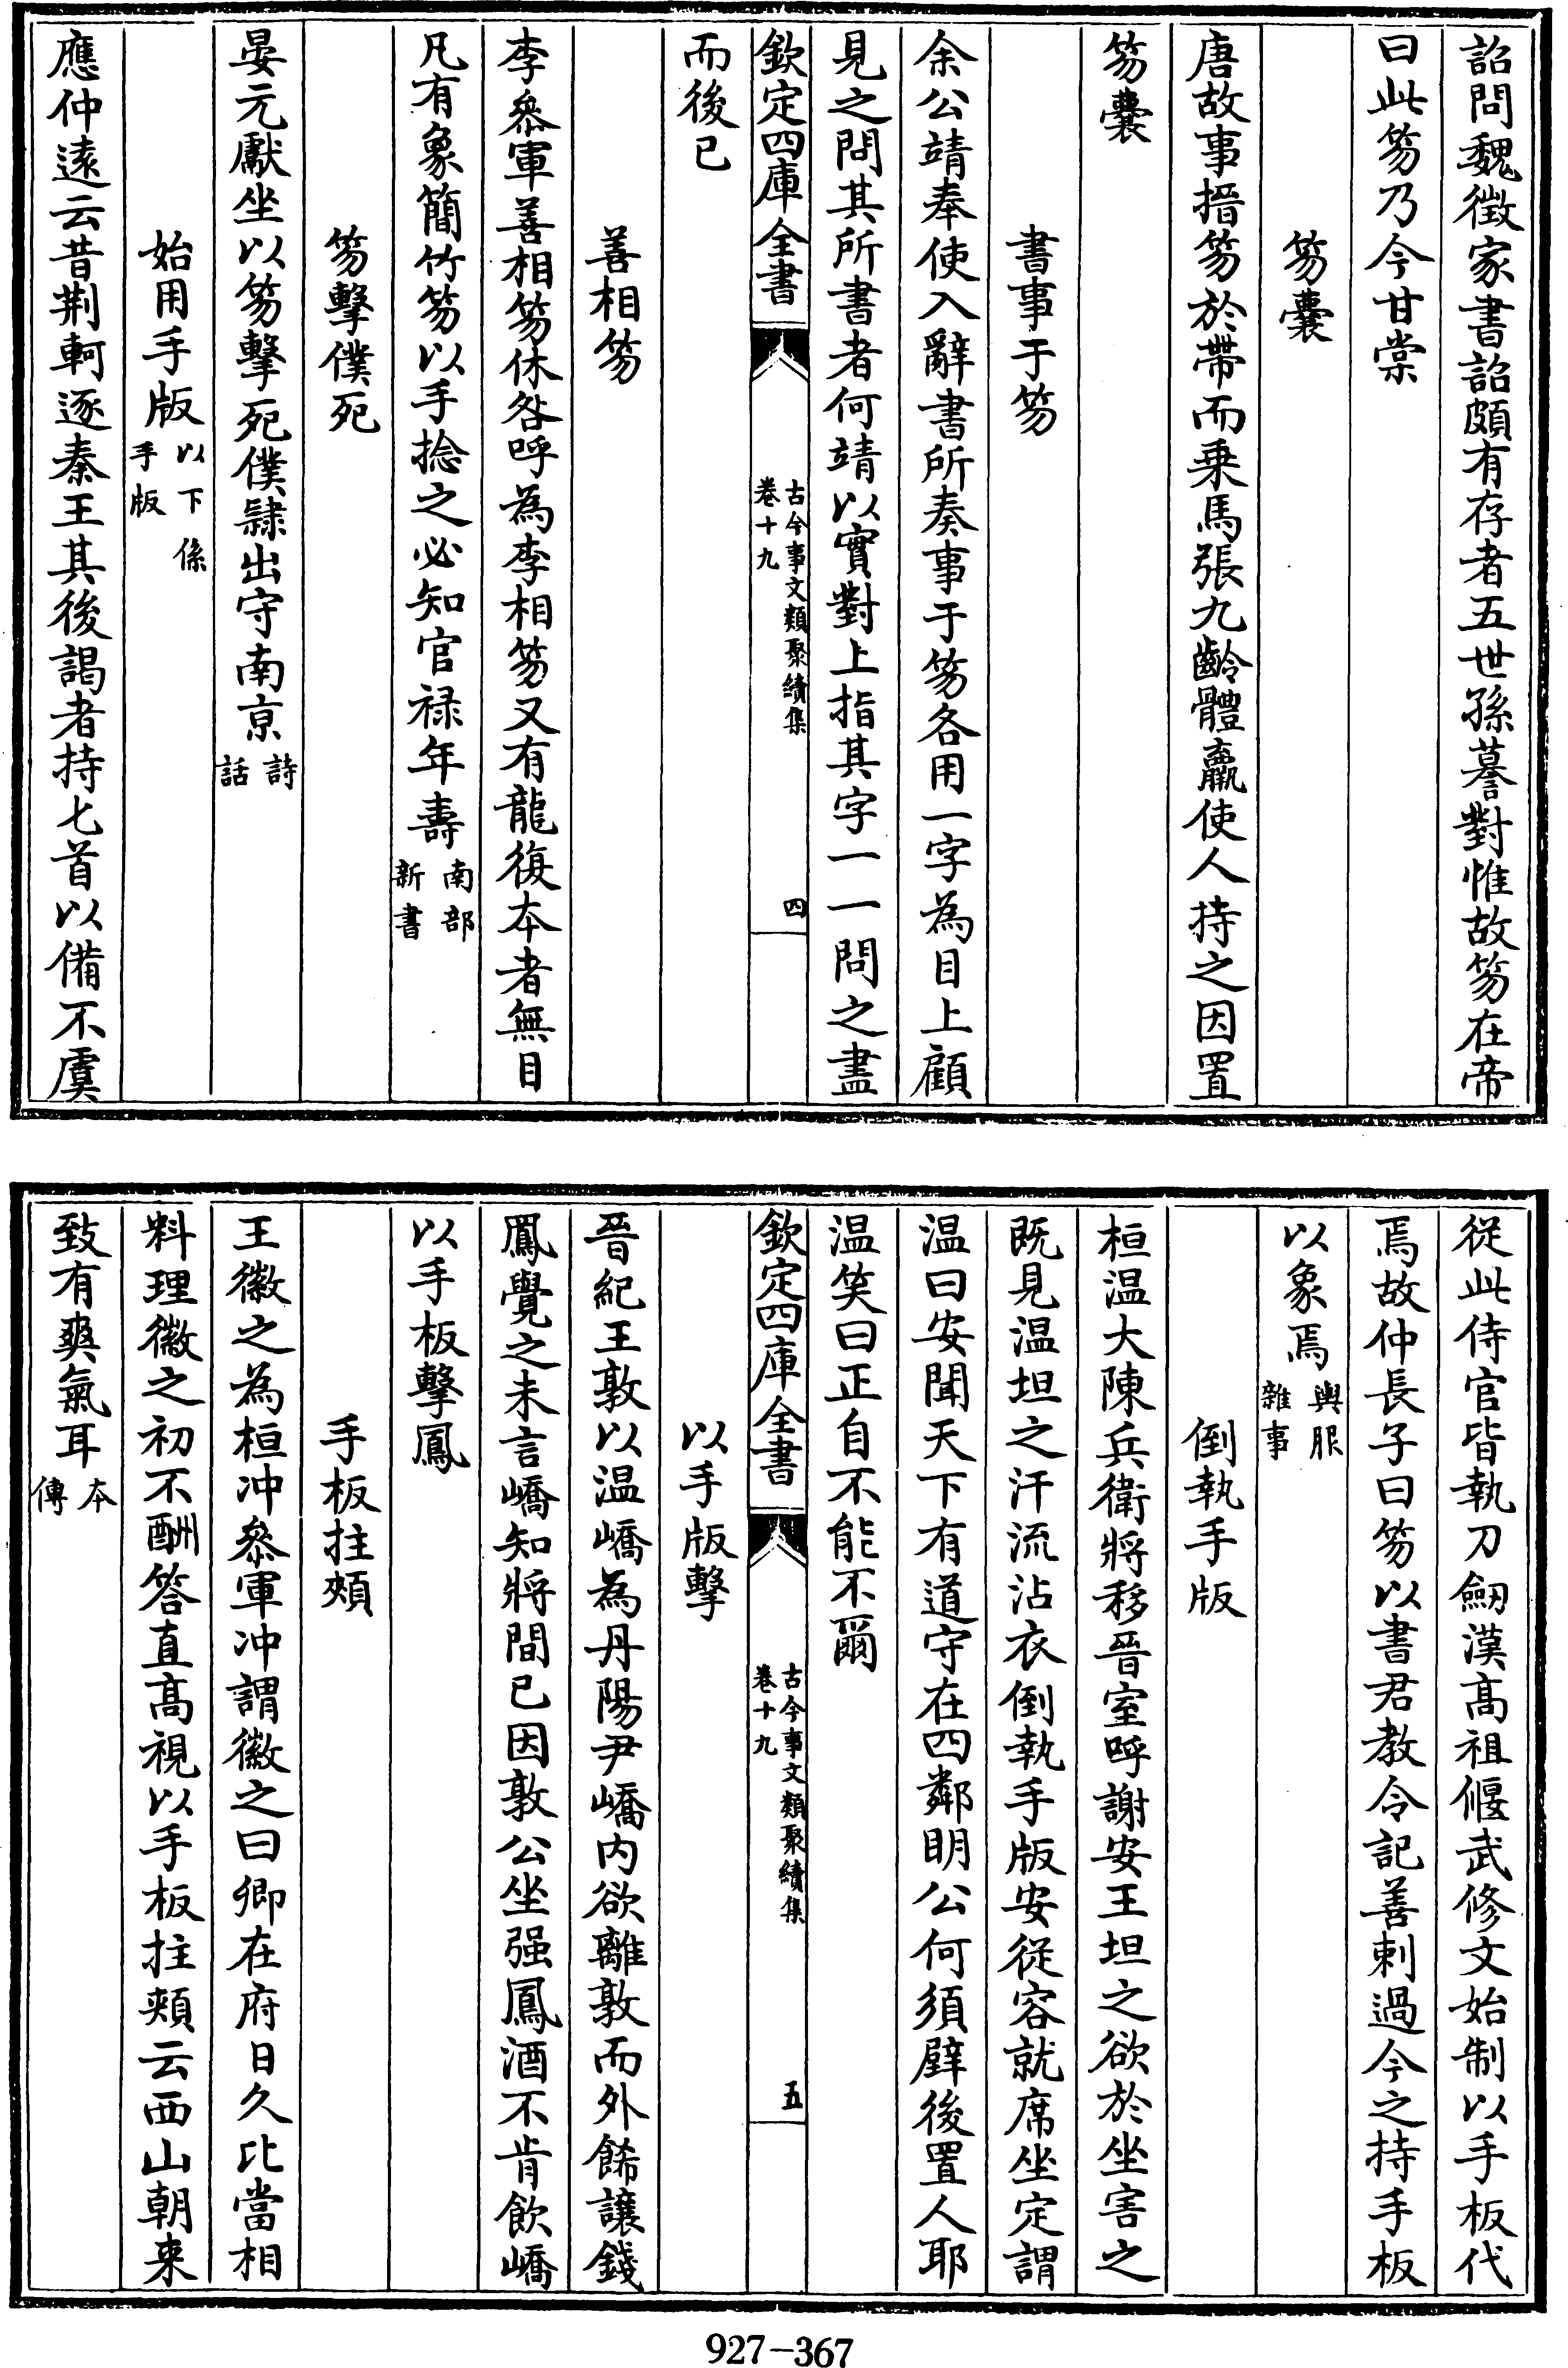 詔問魏徴家書詔頗有存者五世孫謩對惟故笏在帝
曰此笏乃今甘棠
笏囊
唐故事搢笏於帶而乗馬張九齡體羸使人持之因置
笏囊
書事于笏
余公靖奉使入辭書所奏事于笏各用一字為目上顧
見之問其所書者何靖以實對上指其字一一問之盡
欽定四庫全書
古今事文類聚續集
卷十九
四
而後已
善相笏
李參軍善相笏休咎呼為李相笏又有龍復本者無目
凡有象簡竹笏以手捻之必知官禄年壽南部
新書
笏擊僕死
晏元獻坐以笏擊死僕隸出守南京詩
話
始用手版以下係
手版
應仲逺云昔荆軻逐秦王其後謁者持七首以備不虞
從此侍官皆執刀劒漢髙祖偃武修文始制以手板代
焉故仲長子曰笏以書君教令記善刺過今之持手板
以象焉輿服
雜事
倒執手版
桓温大陳兵衛將移晉室呼謝安王坦之欲於坐害之
既見温坦之汗流沾衣倒執手版安從容就席坐定謂
温曰安聞天下有道守在四鄰明公何須壁後置人耶
温笑曰正自不能不爾
欽定四庫全書
古今事文類聚續集
卷十九
五
以手版擊
晉紀王敦以温嶠為丹陽尹嶠内欲離敦而外餙讓錢
鳳覺之未言嶠知將間已因敦公坐强鳳酒不肯飲嶠
以手板擊鳳
手板拄頰
王徽之為桓冲參軍冲謂徽之曰卿在府日久比當相
料理徽之初不酬答直髙視以手板拄頰云西山朝来
致有爽氣耳本
傳
927-367